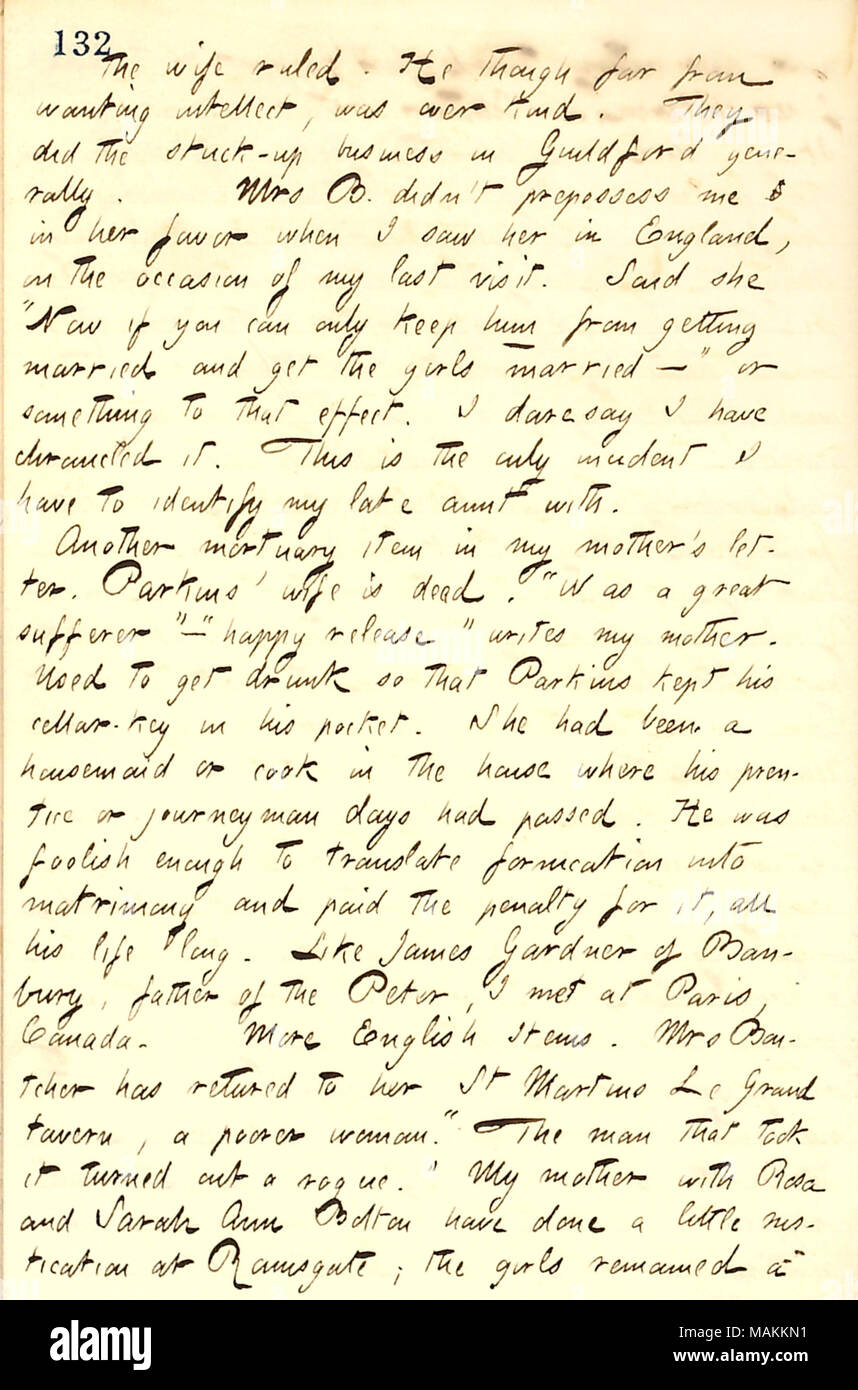 132
the wife ruled. He though far from
wanting intellect, was over kind. They
did the stuck-up business in Guildford gene-
rally. Mrs B. didn't prepossess me
in her favor when I saw her in England,
on the occasion of my last visit. Said she
"Now if you can only keep him from getting
married and get the girls married —" or
something to that effect. I dare say I have
chronicled it. This is the only incident I
have to identify my late aunt with.
Another mortuary item in my mother's let-
ter. Parkins' wife is dead. "Was a great
sufferer" — "happy release" writes my mother.
Used to get drunk so that Parkins kept his
cellar-key in his pocket. She had been a
housemaid or cook in the house where his pren-
tice or journeyman days had passed. He was
foolish enough to translate fornication into
matrimony and paid the penalty for it, all
his life long. Like James Gardner of Ban-
bury, father of the Peter, I met at Paris,
Canada. More English items. Mrs
tcher has retured to her St Martins Le Grand
tavern, a poorer woman." The man that took
it turned out a rogue." My mother with Rosa
and Sarah Ann Bolton have done a little rus-
tication at Ramsgate; the girls remained a
alamy
Image ID: MAKKN1
www.alamy.com